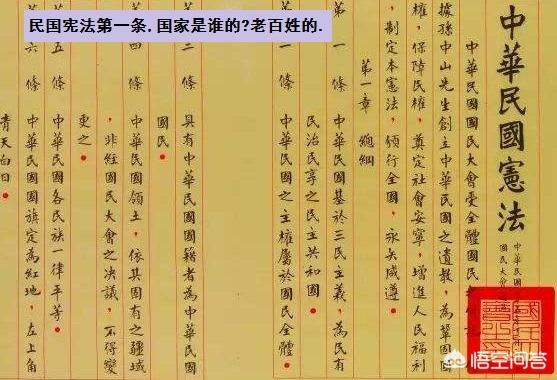 民国宪法第一条.国家是谁的?老百姓的.
中華民國憲法
中華民國
國民大會
中華民國國民大會受全體國民
據孫中山先生創立中華民國之遺教，為鞏固國
權，保障民權，奠定社會安寧，增進人民福利
，制定本憲法，頒行全國，永矢咸遵。
第一章 總綱
第一條 中華民國基於三民主義，為民有
民治民享之民主共和國。
條 中華民國之主權屬於國民全體。
條 具有中華民國國籍者為中華民國
國民。
條 中華民國領土，依其固有之疆域
，非經國民大會之決議，不得變
更之。
五條 中華民國各民族一律平等。
六條 中華民國國旗定為紅地，左上角
青天白日。
悟空问答